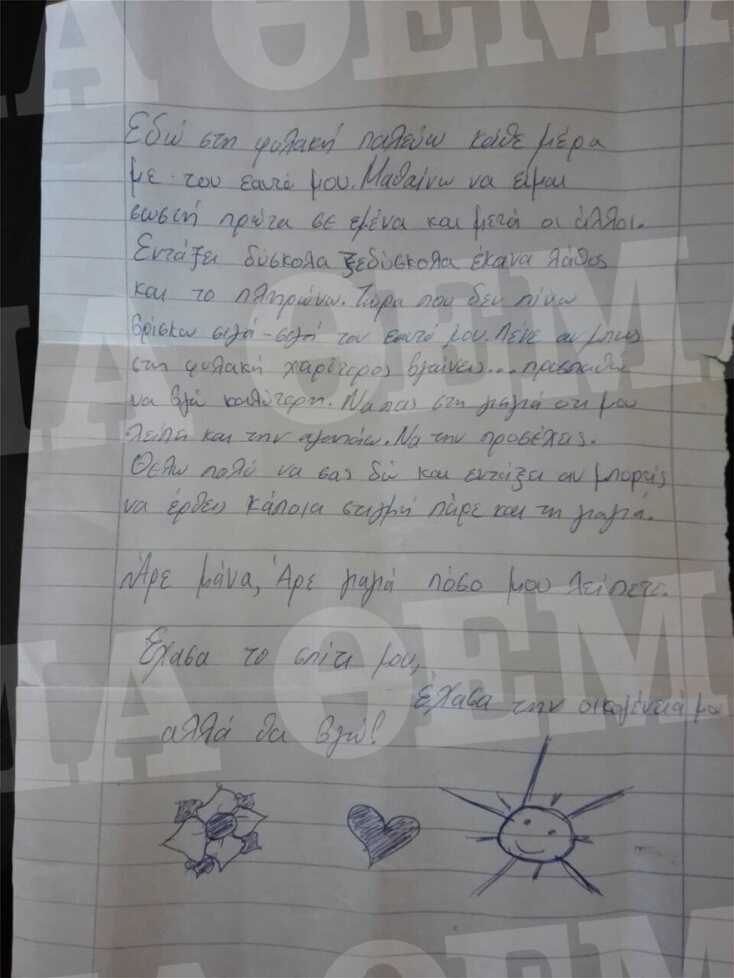 Εδώ στη φυλακή παλεύω κάθε μέρα
με τον εαυτό μου. Μαθαίνω να είμαι
σωστή πρώτα σε εμένα και μετά οι άλλοι.
Εντάξει δύσκολα ξεδύσκολα έκανα λάθος
και το πληρώνω. Τώρα που δεν πίνω
βρίσκω σιγά-σιγά τον εαυτό μου. Λένε αν μπεις
στη φυλακή χειρότερος βγαίνεις... προσπαθώ
να βγω καλύτερη. Να πεις στη γιαγιά οτι μου
λείπει και την αγαπάω. Να την προσέχεις.
Θέλω πολύ να σας δώ και εντάξει αν μπορείς
να έρθεις κάποια στιγμή πάρε και τη γιαγιά.
Άρε μάνα, Άρε γιαγιά πόσο μου λείπετε.
Έχασα το σπίτι μου,
έχασα την οικογένειά μου
αλλά θα βγώ!
ΘΕΜΑ
ΘΕΜΑ
ΘΕΜΑ